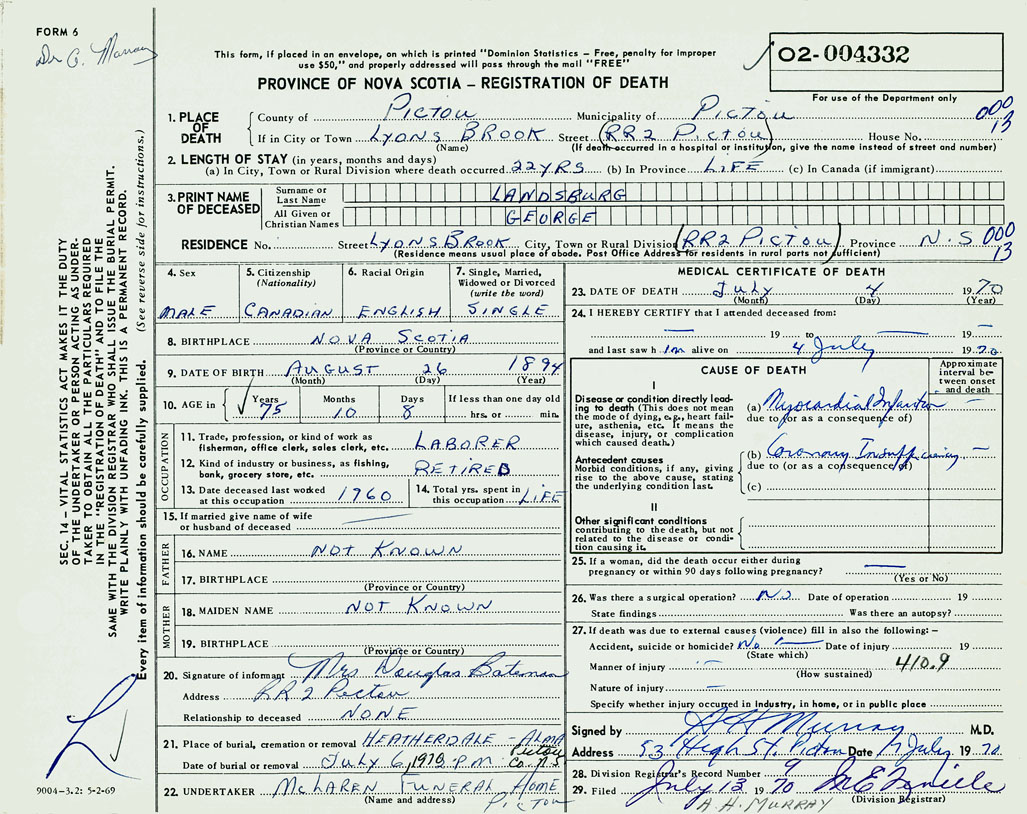 FORM 6
Dr G. Murray
This form, if placed in an envelope, on which is printed "Dominion Statistics – Free, penalty for improper
use $50," and properly addressed will pass through the mail "FREE"
PROVINCE OF NOVA SCOTIA – REGISTRATION OF DEATH
02-004332
For use of the Department only
1. PLACE OF DEATH
County of PICTOU Municipality of PICTOU 000
If in City or Town LYONS BROOK Street (RR2 PICTOU) House No. 13
(Name) (If death occurred in a hospital or institution, give the name instead of street and number)
2. LENGTH OF STAY (in years, months and days)
(a) In City, Town or Rural Division where death occurred 22 YRS (b) In Province LIFE (c) In Canada (if immigrant)
3. PRINT NAME OF DECEASED
Surname or Last Name LANDSBURG
All Given or Christian Names GEORGE
RESIDENCE No. Street LYONS BROOK City, Town or Rural Division (RR2 PICTOU) Province N.S 000
(Residence means usual place of abode. Post Office Address for residents in rural parts not sufficient) 13
4. Sex
MALE
5. Citizenship
(Nationality)
CANADIAN
6. Racial Origin
ENGLISH
7. Single, Married,
Widowed or Divorced
(write the word)
SINGLE
8. BIRTHPLACE NOVA SCOTIA
(Province or Country)
9. DATE OF BIRTH AUGUST 26 1894
(Month) (Day) (Year)
10. AGE in Years Months Days If less than one day old
75 10 8 hrs. or min.
OCCUPATION
11. Trade, profession, or kind of work as
fisherman, office clerk, sales clerk, etc. LABORER
12. Kind of industry or business, as fishing,
bank, grocery store, etc. RETIRED
13. Date deceased last worked
at this occupation 1960
14. Total yrs. spent in
this occupation LIFE
15. If married give name of wife
or husband of deceased
FATHER
16. NAME NOT KNOWN
17. BIRTHPLACE
(Province or Country)
MOTHER
18. MAIDEN NAME NOT KNOWN
19. BIRTHPLACE
(Province or Country)
20. Signature of informant Mrs Douglas Bateman
Address RR2 Pictou
Relationship to deceased NONE
21. Place of burial, cremation or removal HEATHERDALE – ALMA
Pictou
Date of burial or removal July 6, 1970 P.M. Co. N S
22. UNDERTAKER MCLAREN FUNERAL HOME
(Name and address) PICTOU
MEDICAL CERTIFICATE OF DEATH
23. DATE OF DEATH July 4 1970
(Month) (Day) (Year)
24. I HEREBY CERTIFY that I attended deceased from:
— 19 — to — 19 —
and last saw h im alive on 4 July 1970
CAUSE OF DEATH
Approximate interval between onset and death
I
Disease or condition directly leading to death (This does not mean the mode of dying, e.g., heart failure, asthenia, etc. It means the disease, injury, or complication which caused death.)
(a) Myocardial Infarction —
due to (or as a consequence of)
Antecedent causes
Morbid conditions, if any, giving rise to the above cause, stating the underlying condition last.
(b) Coronary Insufficiency —
due to (or as a consequence of)
(c)
II
Other significant conditions
contributing to the death, but not related to the disease or condition causing it.
25. If a woman, did the death occur either during
pregnancy or within 90 days following pregnancy? —
(Yes or No)
26. Was there a surgical operation? No Date of operation 19
State findings Was there an autopsy?
27. If death was due to external causes (violence) fill in also the following: –
Accident, suicide or homicide? No Date of injury 19
(State which) 410.9
Manner of injury —
(How sustained)
Nature of injury —
Specify whether injury occurred in industry, in home, or in public place
Signed by A H Murray M.D.
Address 53 High St. Pictou Date 7 July 1970
28. Division Registrar's Record Number 9
29. Filed July 13 1970
(Division Registrar)
A. H. MURRAY
SEC. 14 – VITAL STATISTICS ACT MAKES IT THE DUTY
OF THE UNDERTAKER OR PERSON ACTING AS UNDER-
TAKER TO OBTAIN ALL THE PARTICULARS REQUIRED
IN THE "REGISTRATION OF DEATH" AND TO FILE THE
SAME WITH THE DIVISION REGISTRAR WHO SHALL ISSUE THE BURIAL PERMIT.
WRITE PLAINLY WITH UNFADING INK. THIS IS A PERMANENT RECORD.
Every item of information should be carefully supplied. (See reverse side for instructions.)
9004–3.2: 5-2-69